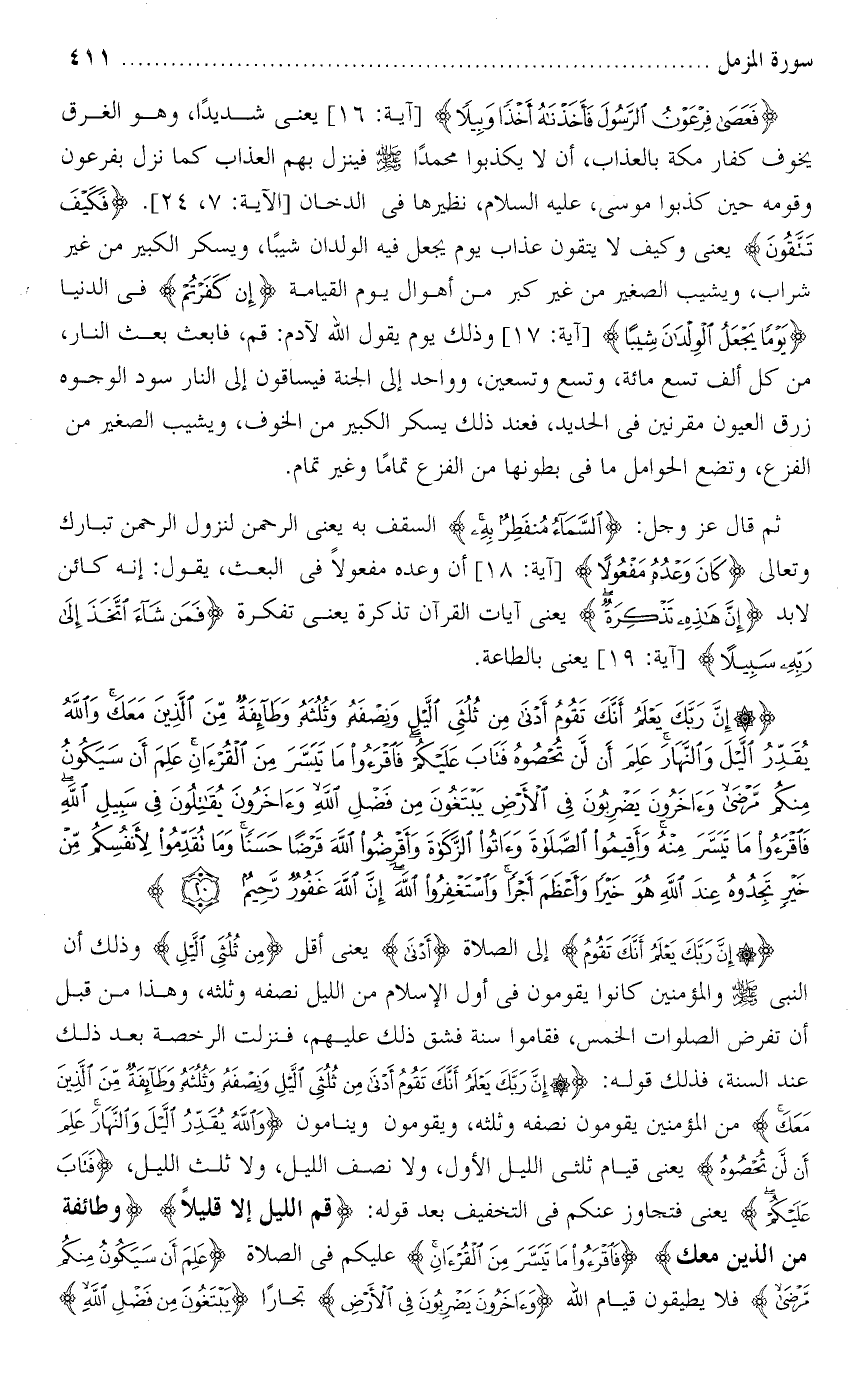 سورة المزمل ........................................................................ ٤١١
﴿فَعَصَىٰ فِرْعَوْنُ ٱلرَّسُولَ فَأَخَذْنَٰهُ أَخْذًا وَبِيلًا﴾ [آية: ١٦] يعنى شـديدًا، وهـو الغرق
يخوف كفار مكة بالعذاب، أن لا يكذبوا محمدًا ﷺ فينزل بهم العذاب كما نزل بفرعون
وقومه حين كذبوا موسى، عليه السلام، نظيرها فى الدخـان [الآية: ٧، ٢٤]. ﴿فَكَيْفَ
تَتَّقُونَ﴾ يعنى وكيف لا يتقون عذاب يوم يجعل فيه الولدان شيبًا، ويسكر الكبير من غير
شراب، ويشيب الصغير من غير كبر مـن أهـوال يـوم القيامـة ﴿إِن كَفَرْتُمْ﴾ فـى الدنيـا
﴿يَوْمًا يَجْعَلُ ٱلْوِلْدَٰنَ شِيبًا﴾ [آية: ١٧] وذلك يوم يقول الله لآدم: قم، فابعث بعـث النار،
من كل ألف تسع مائة، وتسع وتسعين، وواحد إلى الجنة فيساقون إلى النار سود الوجـوه
زرق العيون مقرنين فى الحديد، فعند ذلك يسكر الكبير من الخوف، ويشيب الصغير من
الفزع، وتضع الحوامل ما فى بطونها من الفزع تمامًا وغير تمام.
ثم قال عز وجل: ﴿ٱلسَّمَآءُ مُنفَطِرٌۢ بِهِۦۚ﴾ السقف به يعنى الرحمن لنزول الرحمن تبـارك
وتعالى ﴿كَانَ وَعْدُهُۥ مَفْعُولًا﴾ [آية: ١٨] أن وعده مفعولاً فى البعـث، يقـول: إنـه كـائن
لابد ﴿إِنَّ هَٰذِهِۦ تَذْكِرَةٌۖ﴾ يعنى آيات القرآن تذكرة يعنـى تفكـرة ﴿فَمَن شَآءَ ٱتَّخَذَ إِلَىٰ
رَبِّهِۦ سَبِيلًا﴾ [آية: ١٩] يعنى بالطاعة.
﴿۞ إِنَّ رَبَّكَ يَعْلَمُ أَنَّكَ تَقُومُ أَدْنَىٰ مِن ثُلُثَىِ ٱلَّيْلِ وَنِصْفَهُۥ وَثُلُثَهُۥ وَطَآئِفَةٌ مِّنَ ٱلَّذِينَ مَعَكَۚ وَٱللَّهُ
يُقَدِّرُ ٱلَّيْلَ وَٱلنَّهَارَۚ عَلِمَ أَن لَّن تُحْصُوهُ فَتَابَ عَلَيْكُمْۖ فَٱقْرَءُوا۟ مَا تَيَسَّرَ مِنَ ٱلْقُرْءَانِۚ عَلِمَ أَن سَيَكُونُ
مِنكُم مَّرْضَىٰۙ وَءَاخَرُونَ يَضْرِبُونَ فِى ٱلْأَرْضِ يَبْتَغُونَ مِن فَضْلِ ٱللَّهِۙ وَءَاخَرُونَ يُقَٰتِلُونَ فِى سَبِيلِ ٱللَّهِۖ
فَٱقْرَءُوا۟ مَا تَيَسَّرَ مِنْهُۚ وَأَقِيمُوا۟ ٱلصَّلَوٰةَ وَءَاتُوا۟ ٱلزَّكَوٰةَ وَأَقْرِضُوا۟ ٱللَّهَ قَرْضًا حَسَنًاۚ وَمَا تُقَدِّمُوا۟ لِأَنفُسِكُم مِّنْ
خَيْرٍ تَجِدُوهُ عِندَ ٱللَّهِ هُوَ خَيْرًا وَأَعْظَمَ أَجْرًاۚ وَٱسْتَغْفِرُوا۟ ٱللَّهَۖ إِنَّ ٱللَّهَ غَفُورٌ رَّحِيمٌۢ ٢٠﴾
﴿۞ إِنَّ رَبَّكَ يَعْلَمُ أَنَّكَ تَقُومُ﴾ إلى الصلاة ﴿أَدْنَىٰ﴾ يعنى أقل ﴿مِن ثُلُثَىِ ٱلَّيْلِ﴾ وذلك أن
النبى ﷺ والمؤمنين كانوا يقومون فى أول الإسلام من الليل نصفه وثلثه، وهـذا مـن قبـل
أن تفرض الصلوات الخمس، فقاموا سنة فشق ذلك عليـهم، فـنزلت الرخصـة بعـد ذلـك
عند السنة، فذلك قولـه: ﴿۞ إِنَّ رَبَّكَ يَعْلَمُ أَنَّكَ تَقُومُ أَدْنَىٰ مِن ثُلُثَىِ ٱلَّيْلِ وَنِصْفَهُۥ وَثُلُثَهُۥ وَطَآئِفَةٌ مِّنَ ٱلَّذِينَ
مَعَكَۚ﴾ من المؤمنين يقومون نصفه وثلثه، ويقومون وينـامون ﴿وَٱللَّهُ يُقَدِّرُ ٱلَّيْلَ وَٱلنَّهَارَۚ عَلِمَ
أَن لَّن تُحْصُوهُ﴾ يعنى قيـام ثلثـى الليـل الأول، ولا نصـف الليـل، ولا ثلـث الليـل، ﴿فَتَابَ
عَلَيْكُمْۖ﴾ يعنى فتجاوز عنكم فى التخفيف بعد قوله: ﴿قم الليل إلا قليلاً﴾ ﴿وطائفة
من الذين معك﴾ ﴿فَٱقْرَءُوا۟ مَا تَيَسَّرَ مِنَ ٱلْقُرْءَانِۚ﴾ عليكم فى الصلاة ﴿عَلِمَ أَن سَيَكُونُ مِنكُم
مَّرْضَىٰۙ﴾ فلا يطيقون قيـام الله ﴿وَءَاخَرُونَ يَضْرِبُونَ فِى ٱلْأَرْضِ﴾ تجـارًا ﴿يَبْتَغُونَ مِن فَضْلِ ٱللَّهِۙ﴾